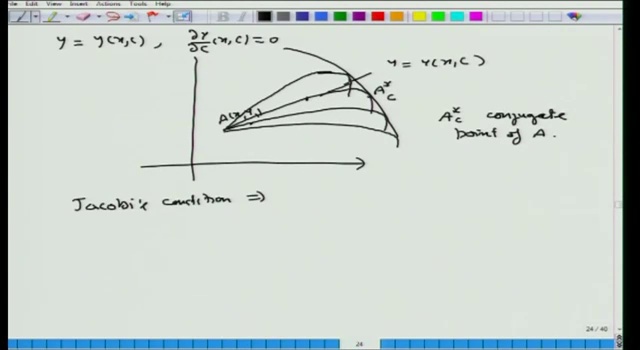 File Edit View Insert Actions Tools Help
y = y(x,c) , ∂y/∂c (x,c) = 0
y = y(x,c)
A*c
A(x, y,)
A*c conjugate
point of A.
Jacobi's condition ⇒
24 / 40
24